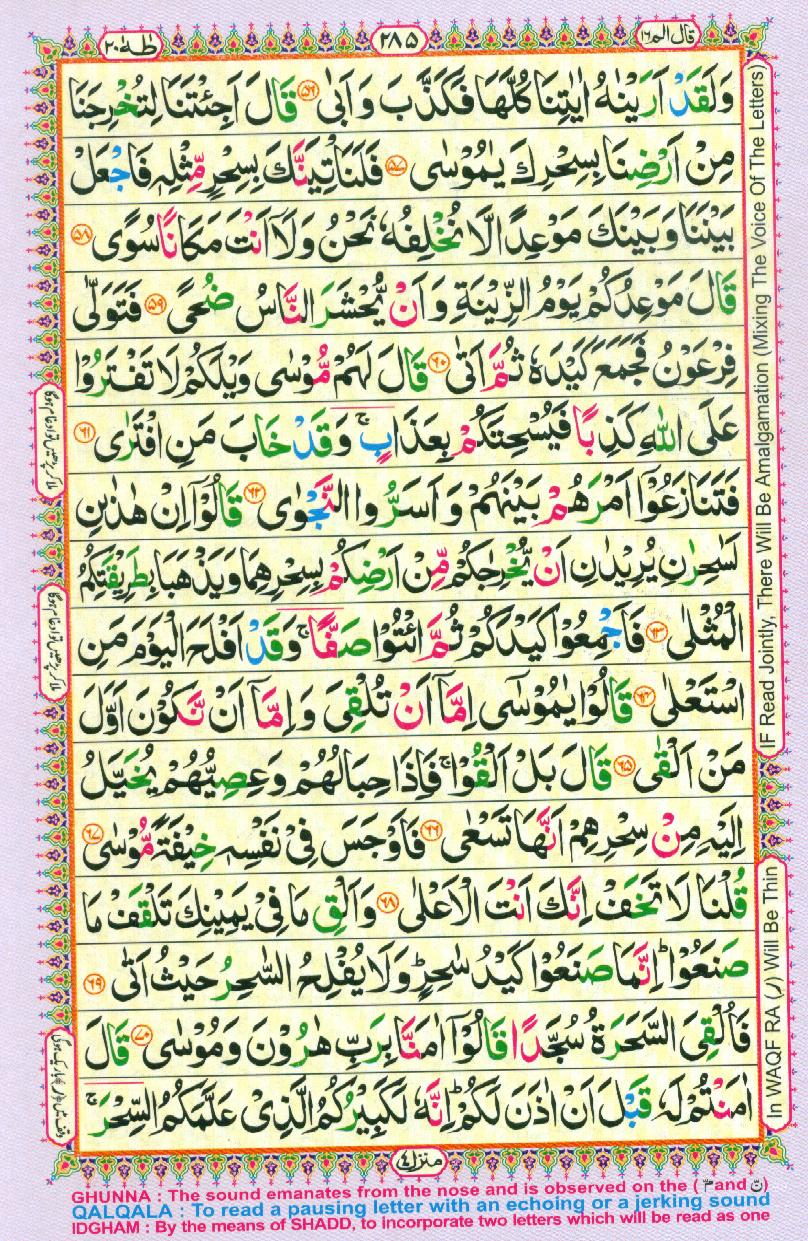 قال الم ١٦
٢٨٥
طٰهٰ ٢٠
وَلَقَدْ اَرَيْنٰهُ اٰيٰتِنَا كُلَّهَا فَكَذَّبَ وَاَبٰى ﴿٥٦﴾ قَالَ اَجِئْتَنَا لِتُخْرِجَنَا
مِنْ اَرْضِنَا بِسِحْرِكَ يٰمُوْسٰى ﴿٥٧﴾ فَلَنَاْتِيَنَّكَ بِسِحْرٍ مِّثْلِهٖ فَاجْعَلْ
بَيْنَنَا وَبَيْنَكَ مَوْعِدًا لَّا نُخْلِفُهٗ نَحْنُ وَلَآ اَنْتَ مَكَانًا سُوًى ﴿٥٨﴾
قَالَ مَوْعِدُكُمْ يَوْمُ الزِّيْنَةِ وَاَنْ يُّحْشَرَ النَّاسُ ضُحًى ﴿٥٩﴾ فَتَوَلّٰى
فِرْعَوْنُ فَجَمَعَ كَيْدَهٗ ثُمَّ اَتٰى ﴿٦٠﴾ قَالَ لَهُمْ مُّوْسٰى وَيْلَكُمْ لَا تَفْتَرُوْا
عَلَى اللّٰهِ كَذِبًا فَيُسْحِتَكُمْ بِعَذَابٍ ۚ وَقَدْ خَابَ مَنِ افْتَرٰى ﴿٦١﴾
فَتَنَازَعُوْٓا اَمْرَهُمْ بَيْنَهُمْ وَاَسَرُّوا النَّجْوٰى ﴿٦٢﴾ قَالُوْٓا اِنْ هٰذٰىنِ
لَسٰحِرٰنِ يُرِيْدٰنِ اَنْ يُّخْرِجٰكُمْ مِّنْ اَرْضِكُمْ بِسِحْرِهِمَا وَيَذْهَبَا بِطَرِيْقَتِكُمُ
الْمُثْلٰى ﴿٦٣﴾ فَاَجْمِعُوْا كَيْدَكُمْ ثُمَّ ائْتُوْا صَفًّا ۚ وَقَدْ اَفْلَحَ الْيَوْمَ مَنِ
اسْتَعْلٰى ﴿٦٤﴾ قَالُوْا يٰمُوْسٰٓى اِمَّآ اَنْ تُلْقِيَ وَاِمَّآ اَنْ نَّكُوْنَ اَوَّلَ
مَنْ اَلْقٰى ﴿٦٥﴾ قَالَ بَلْ اَلْقُوْا ۚ فَاِذَا حِبَالُهُمْ وَعِصِيُّهُمْ يُخَيَّلُ
اِلَيْهِ مِنْ سِحْرِهِمْ اَنَّهَا تَسْعٰى ﴿٦٦﴾ فَاَوْجَسَ فِيْ نَفْسِهٖ خِيْفَةً مُّوْسٰى ﴿٦٧﴾
قُلْنَا لَا تَخَفْ اِنَّكَ اَنْتَ الْاَعْلٰى ﴿٦٨﴾ وَاَلْقِ مَا فِيْ يَمِيْنِكَ تَلْقَفْ مَا
صَنَعُوْا ؕ اِنَّمَا صَنَعُوْا كَيْدُ سٰحِرٍ ؕ وَلَا يُفْلِحُ السّٰحِرُ حَيْثُ اَتٰى ﴿٦٩﴾
فَاُلْقِيَ السَّحَرَةُ سُجَّدًا قَالُوْٓا اٰمَنَّا بِرَبِّ هٰرُوْنَ وَمُوْسٰى ﴿٧٠﴾ قَالَ
اٰمَنْتُمْ لَهٗ قَبْلَ اَنْ اٰذَنَ لَكُمْ ؕ اِنَّهٗ لَكَبِيْرُكُمُ الَّذِيْ عَلَّمَكُمُ السِّحْرَ ۚ
منزل ٤
IF Read Jointly, There Will Be Amalgamation (Mixing The Voice Of The Letters)
In WAQF RA (ر) Will Be Thin
GHUNNA : The sound emanates from the nose and is observed on the ( مّ and نّ )
QALQALA : To read a pausing letter with an echoing or a jerking sound
IDGHAM : By the means of SHADD, to incorporate two letters which will be read as one